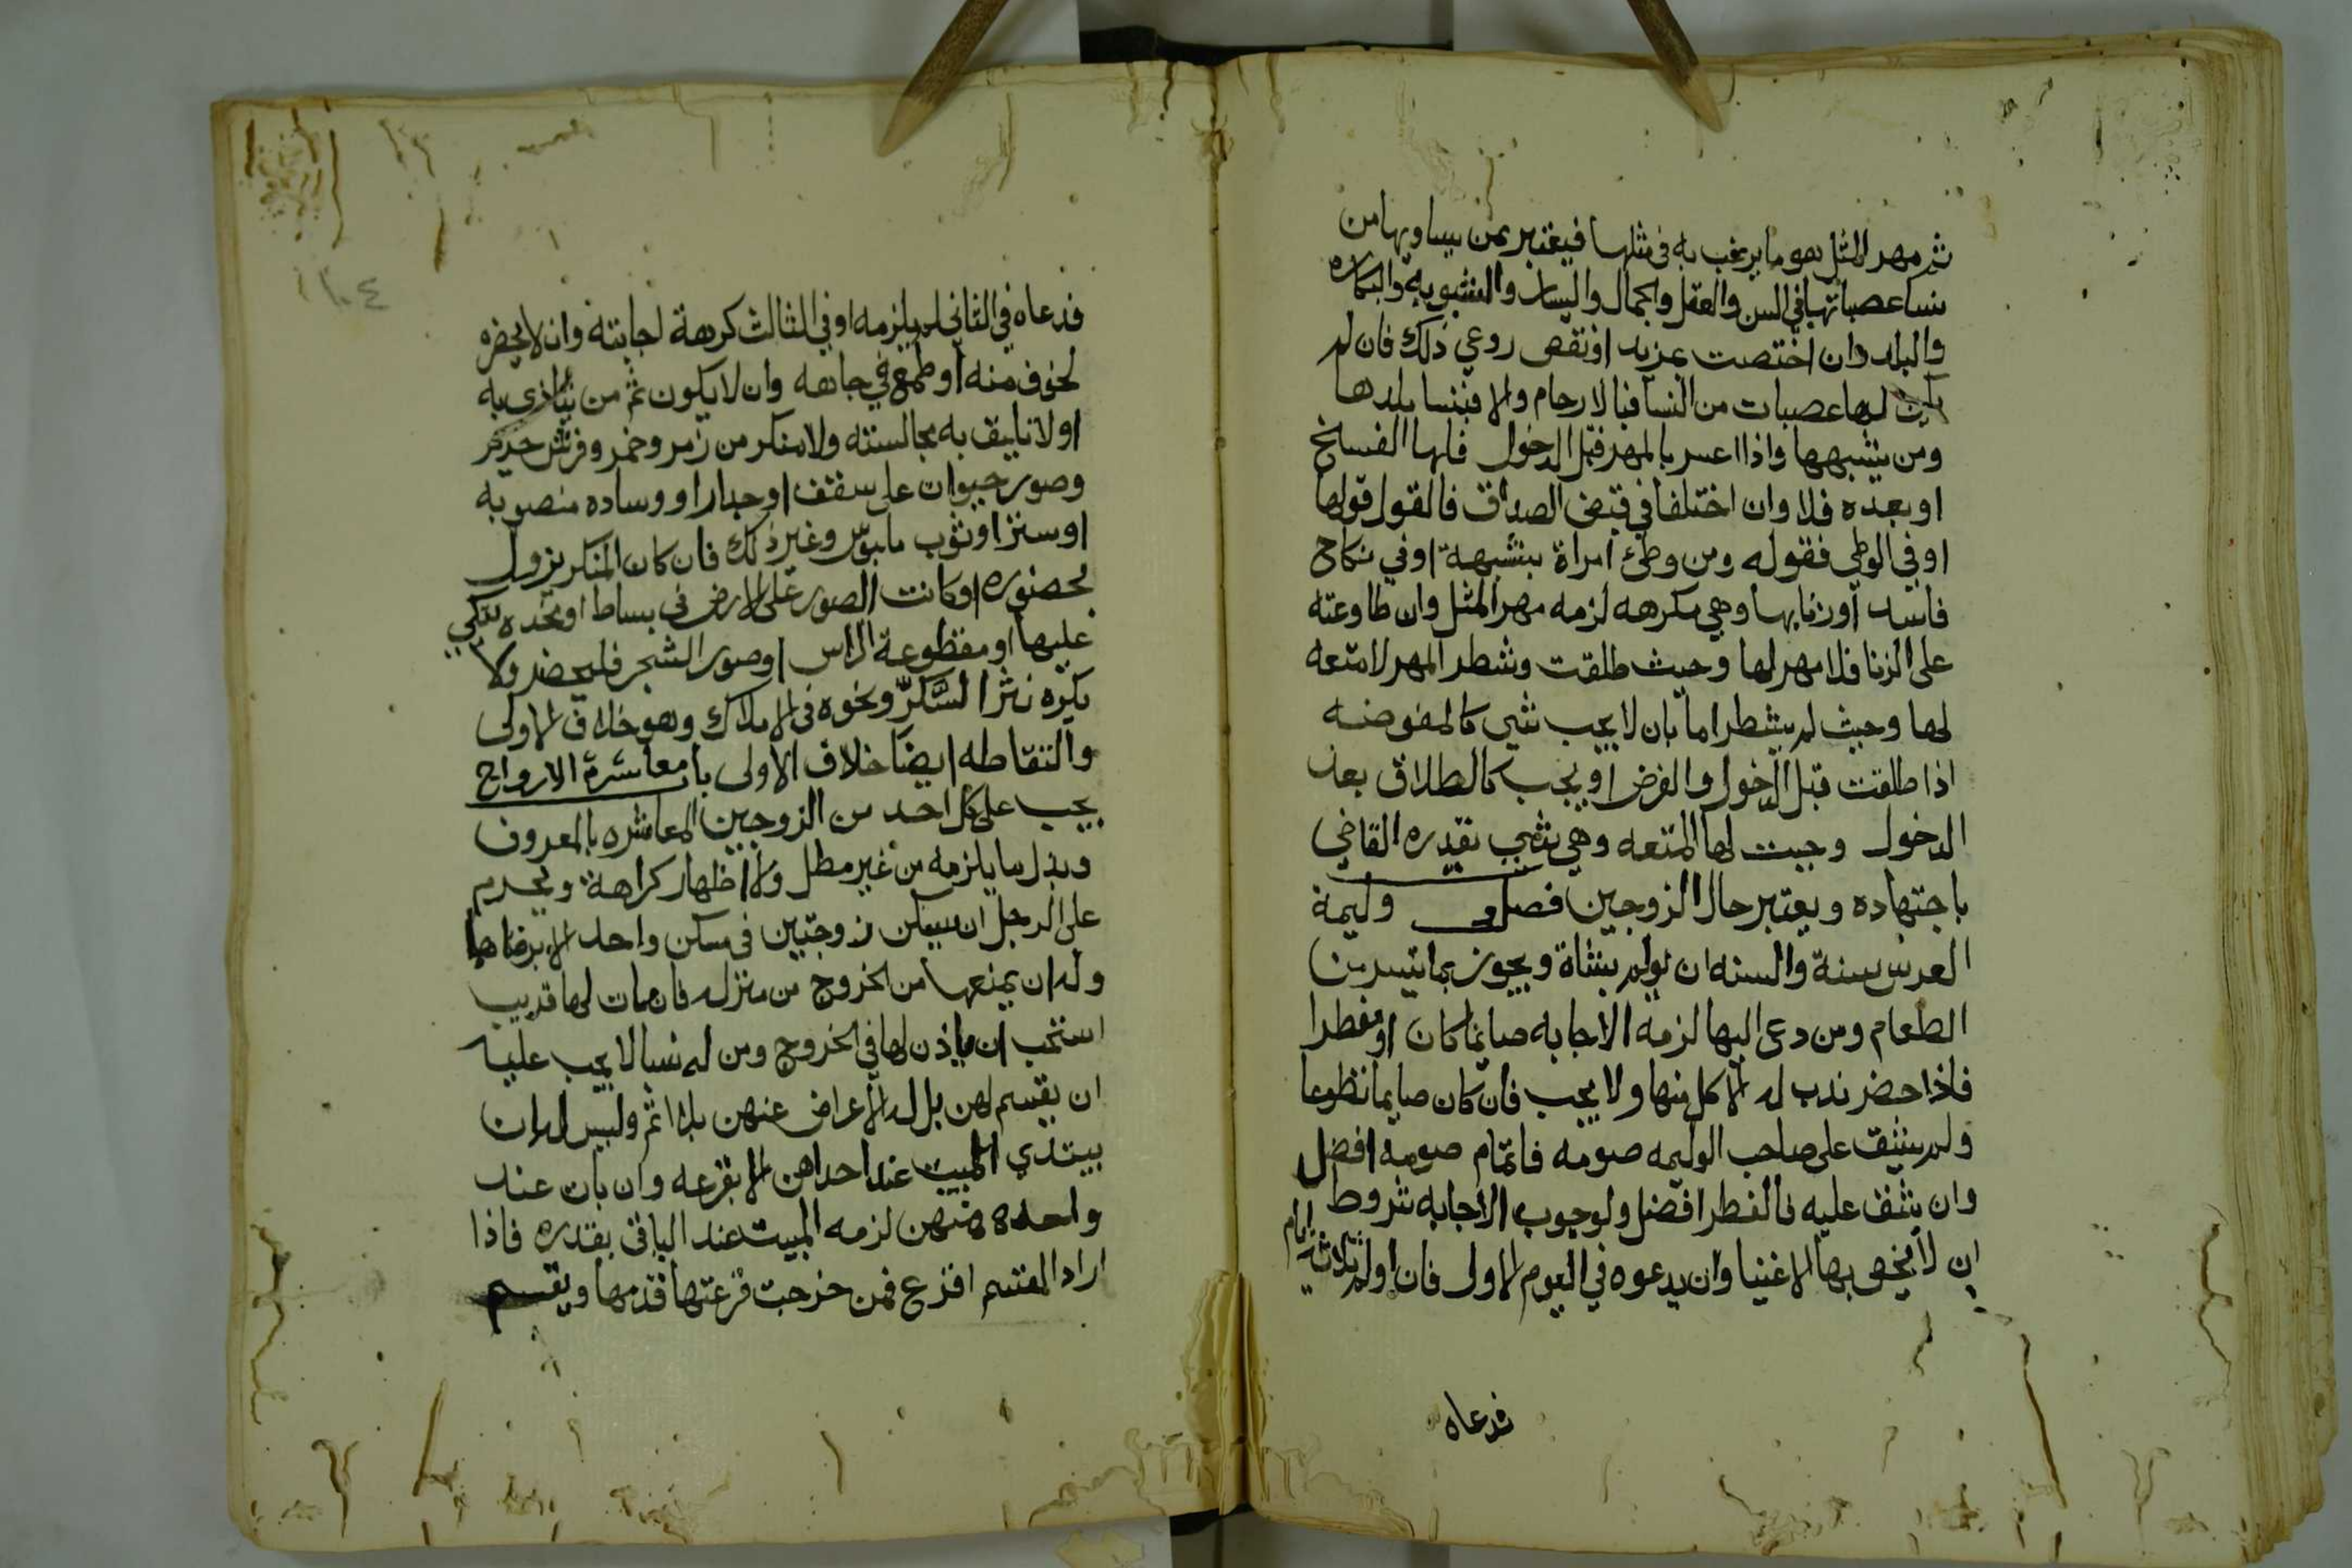 ثم مهر المثل هو ما يرغب به في مثلها فيعتبر بمن يساويها من
نسا عصباتها في السن والعقل والجمال واليسار والثيوبة والبكاره
والبلد وان اختصت بمزيد او نقص روعي ذلك فان لم
يكن لها عصبات من النسا فبالارحام والا فبنسا بلدها
ومن يشبهها واذا اعسر بالمهر قبل الدخول فلها الفسخ
او بعده فلا وان اختلفا في قبض الصداق فالقول قولها
او في الوطي فقوله ومن وطئ امراة بشبهة او في نكاح
فاسد او زنا بها وهي مكرهه لزمه مهر المثل وان طاوعته
على الزنا فلا مهر لها وحيث طلقت وشطر المهر لا متعه
لها وحيث لم يشطر اما بان لا يجب شي كالمفوضه
اذا طلقت قبل الدخول والفرض او يجب كالطلاق بعد
الدخول وجبت لها المتعه وهي شي يقدره القاضي
باجتهاده ويعتبر حال الزوجين فصل وليمة
العرس سنة والسنه ان يولم بشاة ويجوز بما تيسر من
الطعام ومن دعي اليها لزمه الاجابه صايما كان او مفطرا
فاذا حضر ندب له الاكل منها ولا يجب فان كان صايما تطوعا
ولم يشق على صاحب الوليمه صومه فاتمام صومه افضل
وان شق عليه فالفطر افضل ولوجوب الاجابه شروط
ان لا يخص بها الاغنيا وان يدعوه في اليوم الاول فان اولم ثلاثة ايام
فدعاه
١٠٤
فدعاه في الثاني لم يلزمه او في الثالث كرهة اجابته وان لا يحضره
لخوف منه او طمع في جاهه وان لا يكون ثم من يتاذى به
او لا تليق به مجالسته ولا منكر من زمر وخمر وفرش حرير
وصور حيوان على سقف او جدار او وساده منصوبه
او ستر او ثوب ملبوس وغير ذلك فان كان المنكر يزول
بحضوره او كانت الصور على الارض في بساط او مخده يتكي
عليها او مقطوعة الراس او صور الشجر فليحضر ولا
يكره نثر السكر ونحوه في الاملاك وهو خلاف الاولى
والتقاطه ايضا خلاف الاولى باب معاشرة الازواج
يجب على كل احد من الزوجين المعاشره بالمعروف
وبذل ما يلزمه من غير مطل ولا اظهار كراهة ويحرم
على الرجل ان يسكن زوجتين في مسكن واحد الا برضاهما
وله ان يمنعها من الخروج من منزله فان مات لها قريب
استحب ان ياذن لها في الخروج ومن له نسا لا يجب عليه
ان يقسم لهن بل له الاعراض عنهن بلا اثم وليس له ان
يبتدي المبيت عند احداهن الا بقرعه وان بات عند
واحده منهن لزمه المبيت عند الباقي بقدره فاذا
اراد القسم اقرع فمن خرجت قرعتها قدمها ويقسم